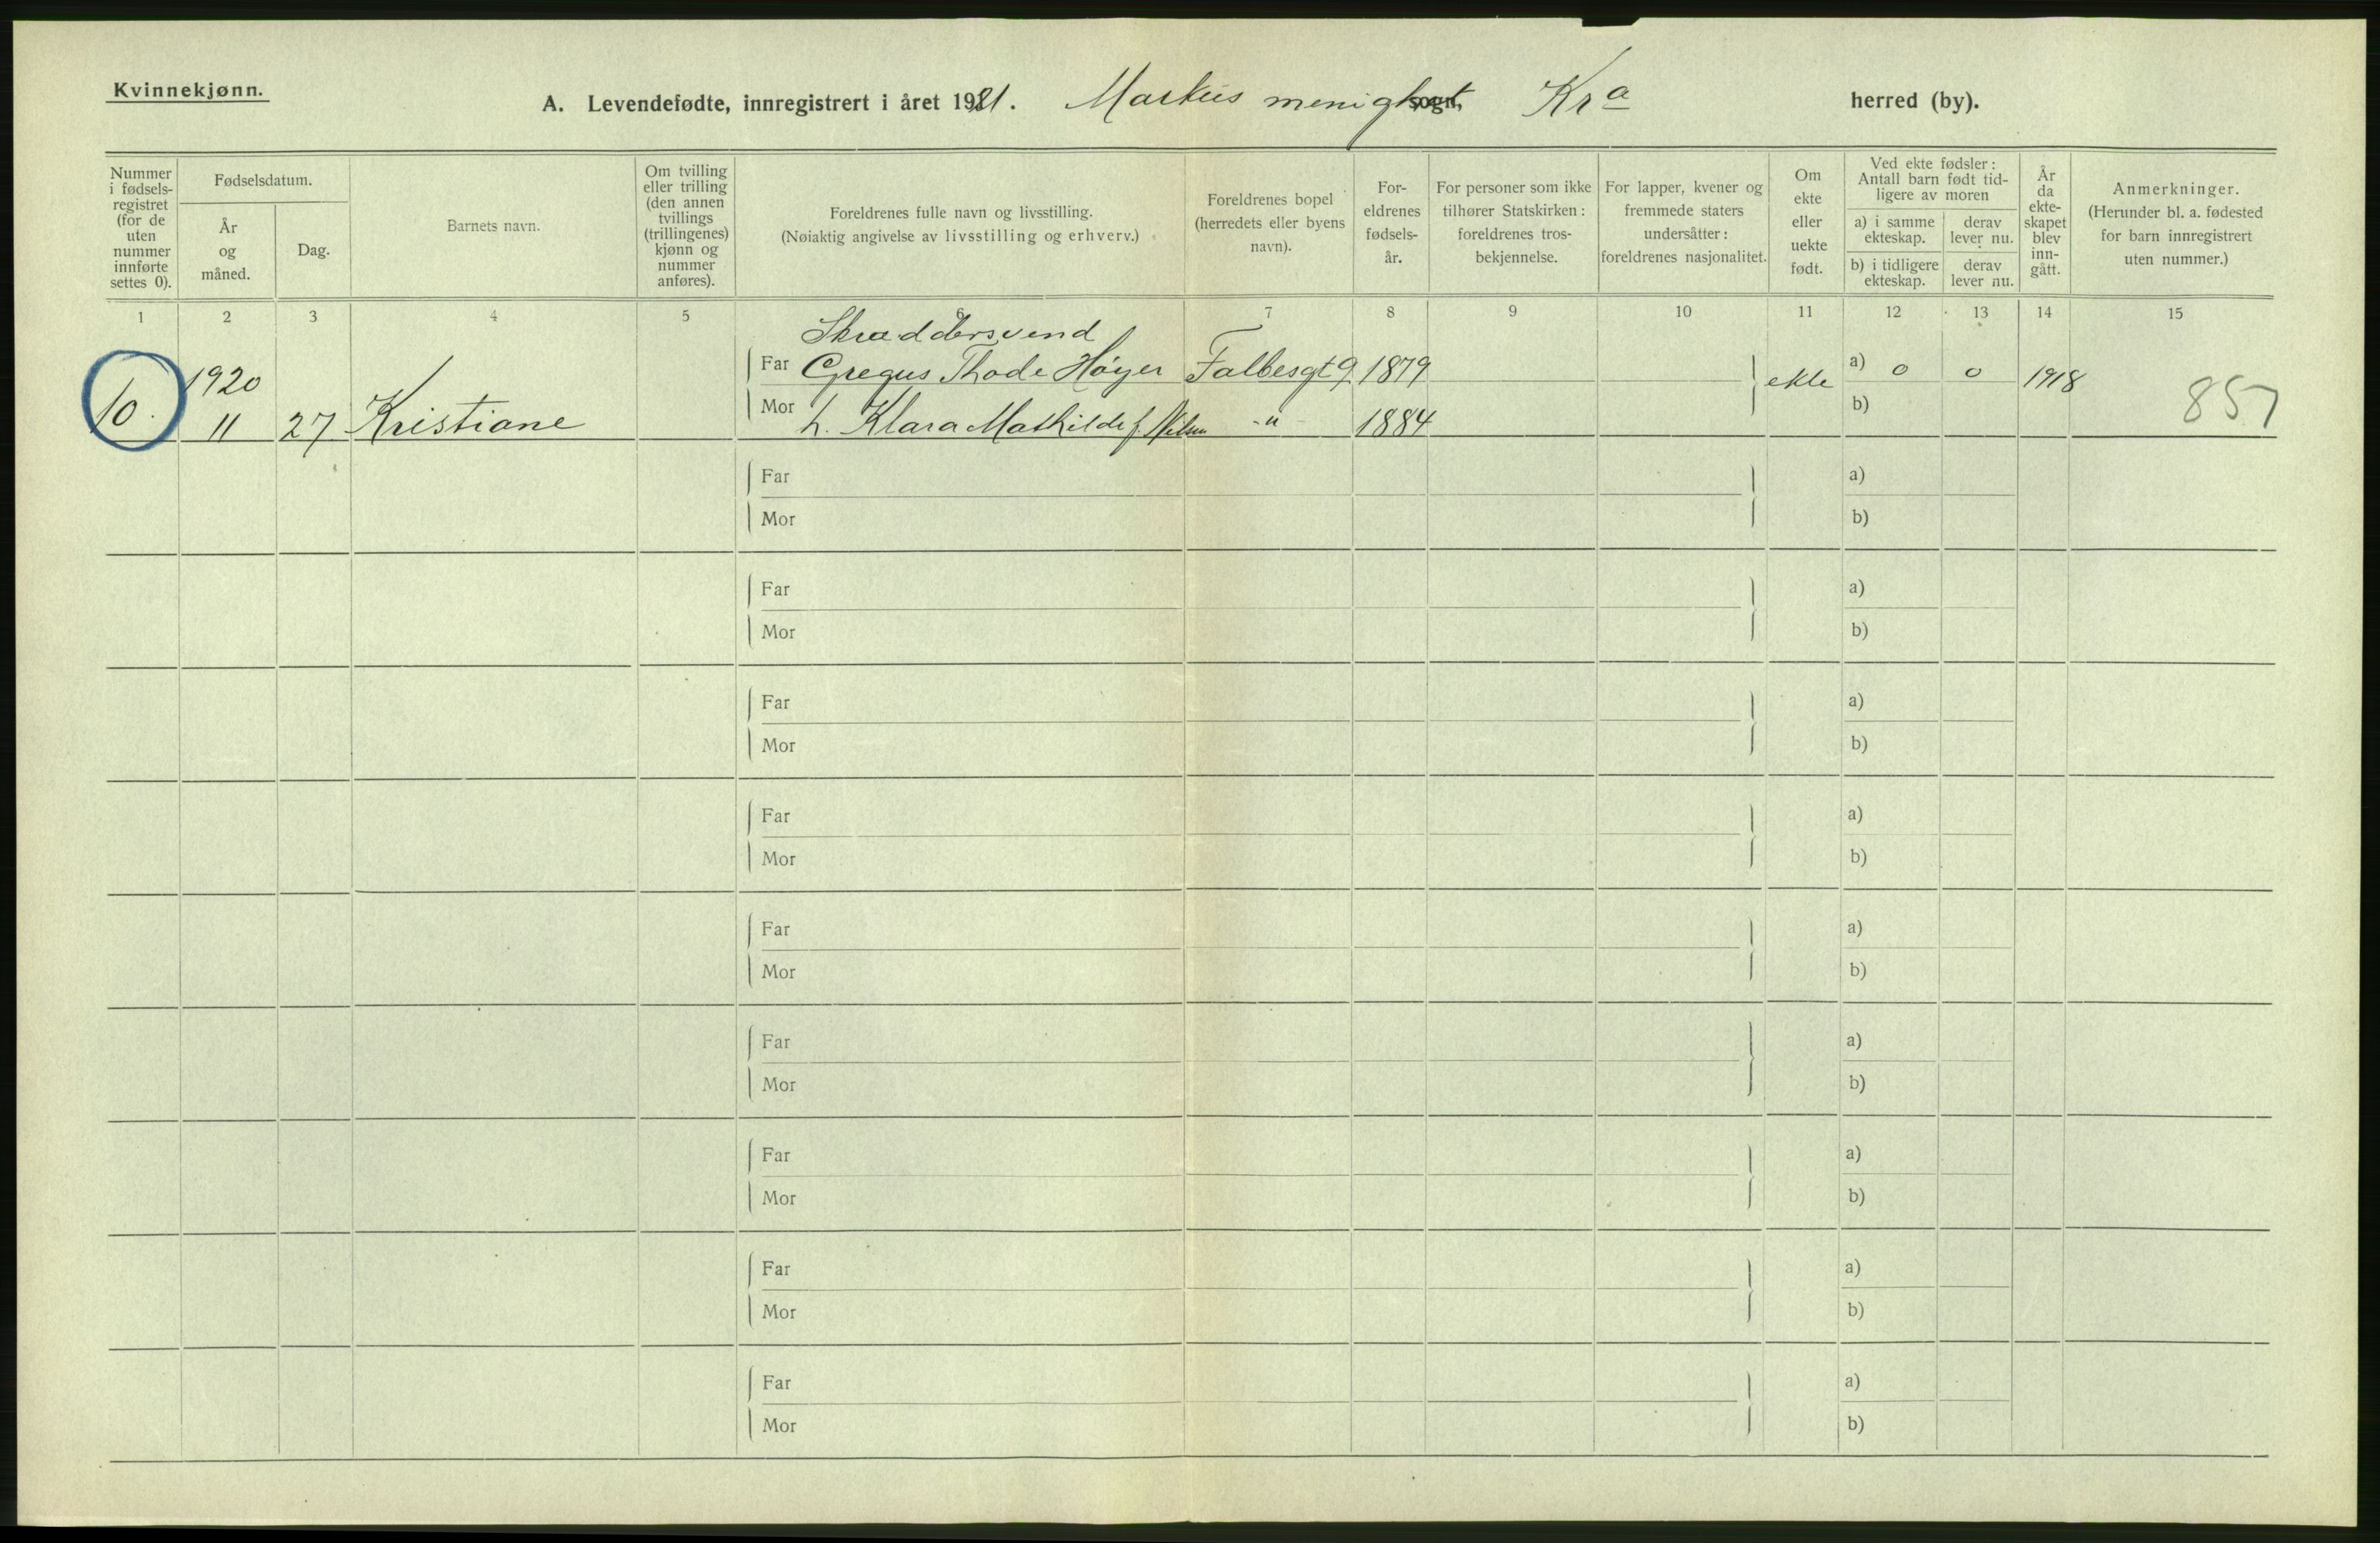 Kvinnekjønn.
A. Levendefødte, innregistrert i året 1921. Markus menighet sogn, Kra herred (by).
Nummer i fødsels- registret (for de uten nummer innførte settes 0).
Fødselsdatum.
År og måned.
Dag.
Barnets navn.
Om tvilling eller trilling (den annen tvillings (trillingenes) kjønn og nummer anføres).
Foreldrenes fulle navn og livsstilling. (Nøiaktig angivelse av livsstilling og erhverv.)
Foreldrenes bopel (herredets eller byens navn).
For- eldrenes fødsels- år.
For personer som ikke tilhører Statskirken: foreldrenes tros- bekjennelse.
For lapper, kvener og fremmede staters undersåtter: foreldrenes nasjonalitet.
Om ekte eller uekte født.
Ved ekte fødsler: Antall barn født tid- ligere av moren
a) i samme ekteskap.
derav lever nu.
b) i tidligere ekteskap.
derav lever nu.
År da ekte- skapet blev inn- gått.
Anmerkninger. (Herunder bl. a. fødested for barn innregistrert uten nummer.)
1 2 3 4 5 6 7 8 9 10 11 12 13 14 15
Skræddersvend
1920 Far Gregus Thode Høyer Falbesgt 9 1879 ekte a) 0 0 1918
10. 11 27 Kristiane Mor h. Klara Mathilde f. Nilsen -"- 1884 b) 857
Far a)
Mor b)
Far a)
Mor b)
Far a)
Mor b)
Far a)
Mor b)
Far a)
Mor b)
Far a)
Mor b)
Far a)
Mor b)
Far a)
Mor b)
Far a)
Mor b)